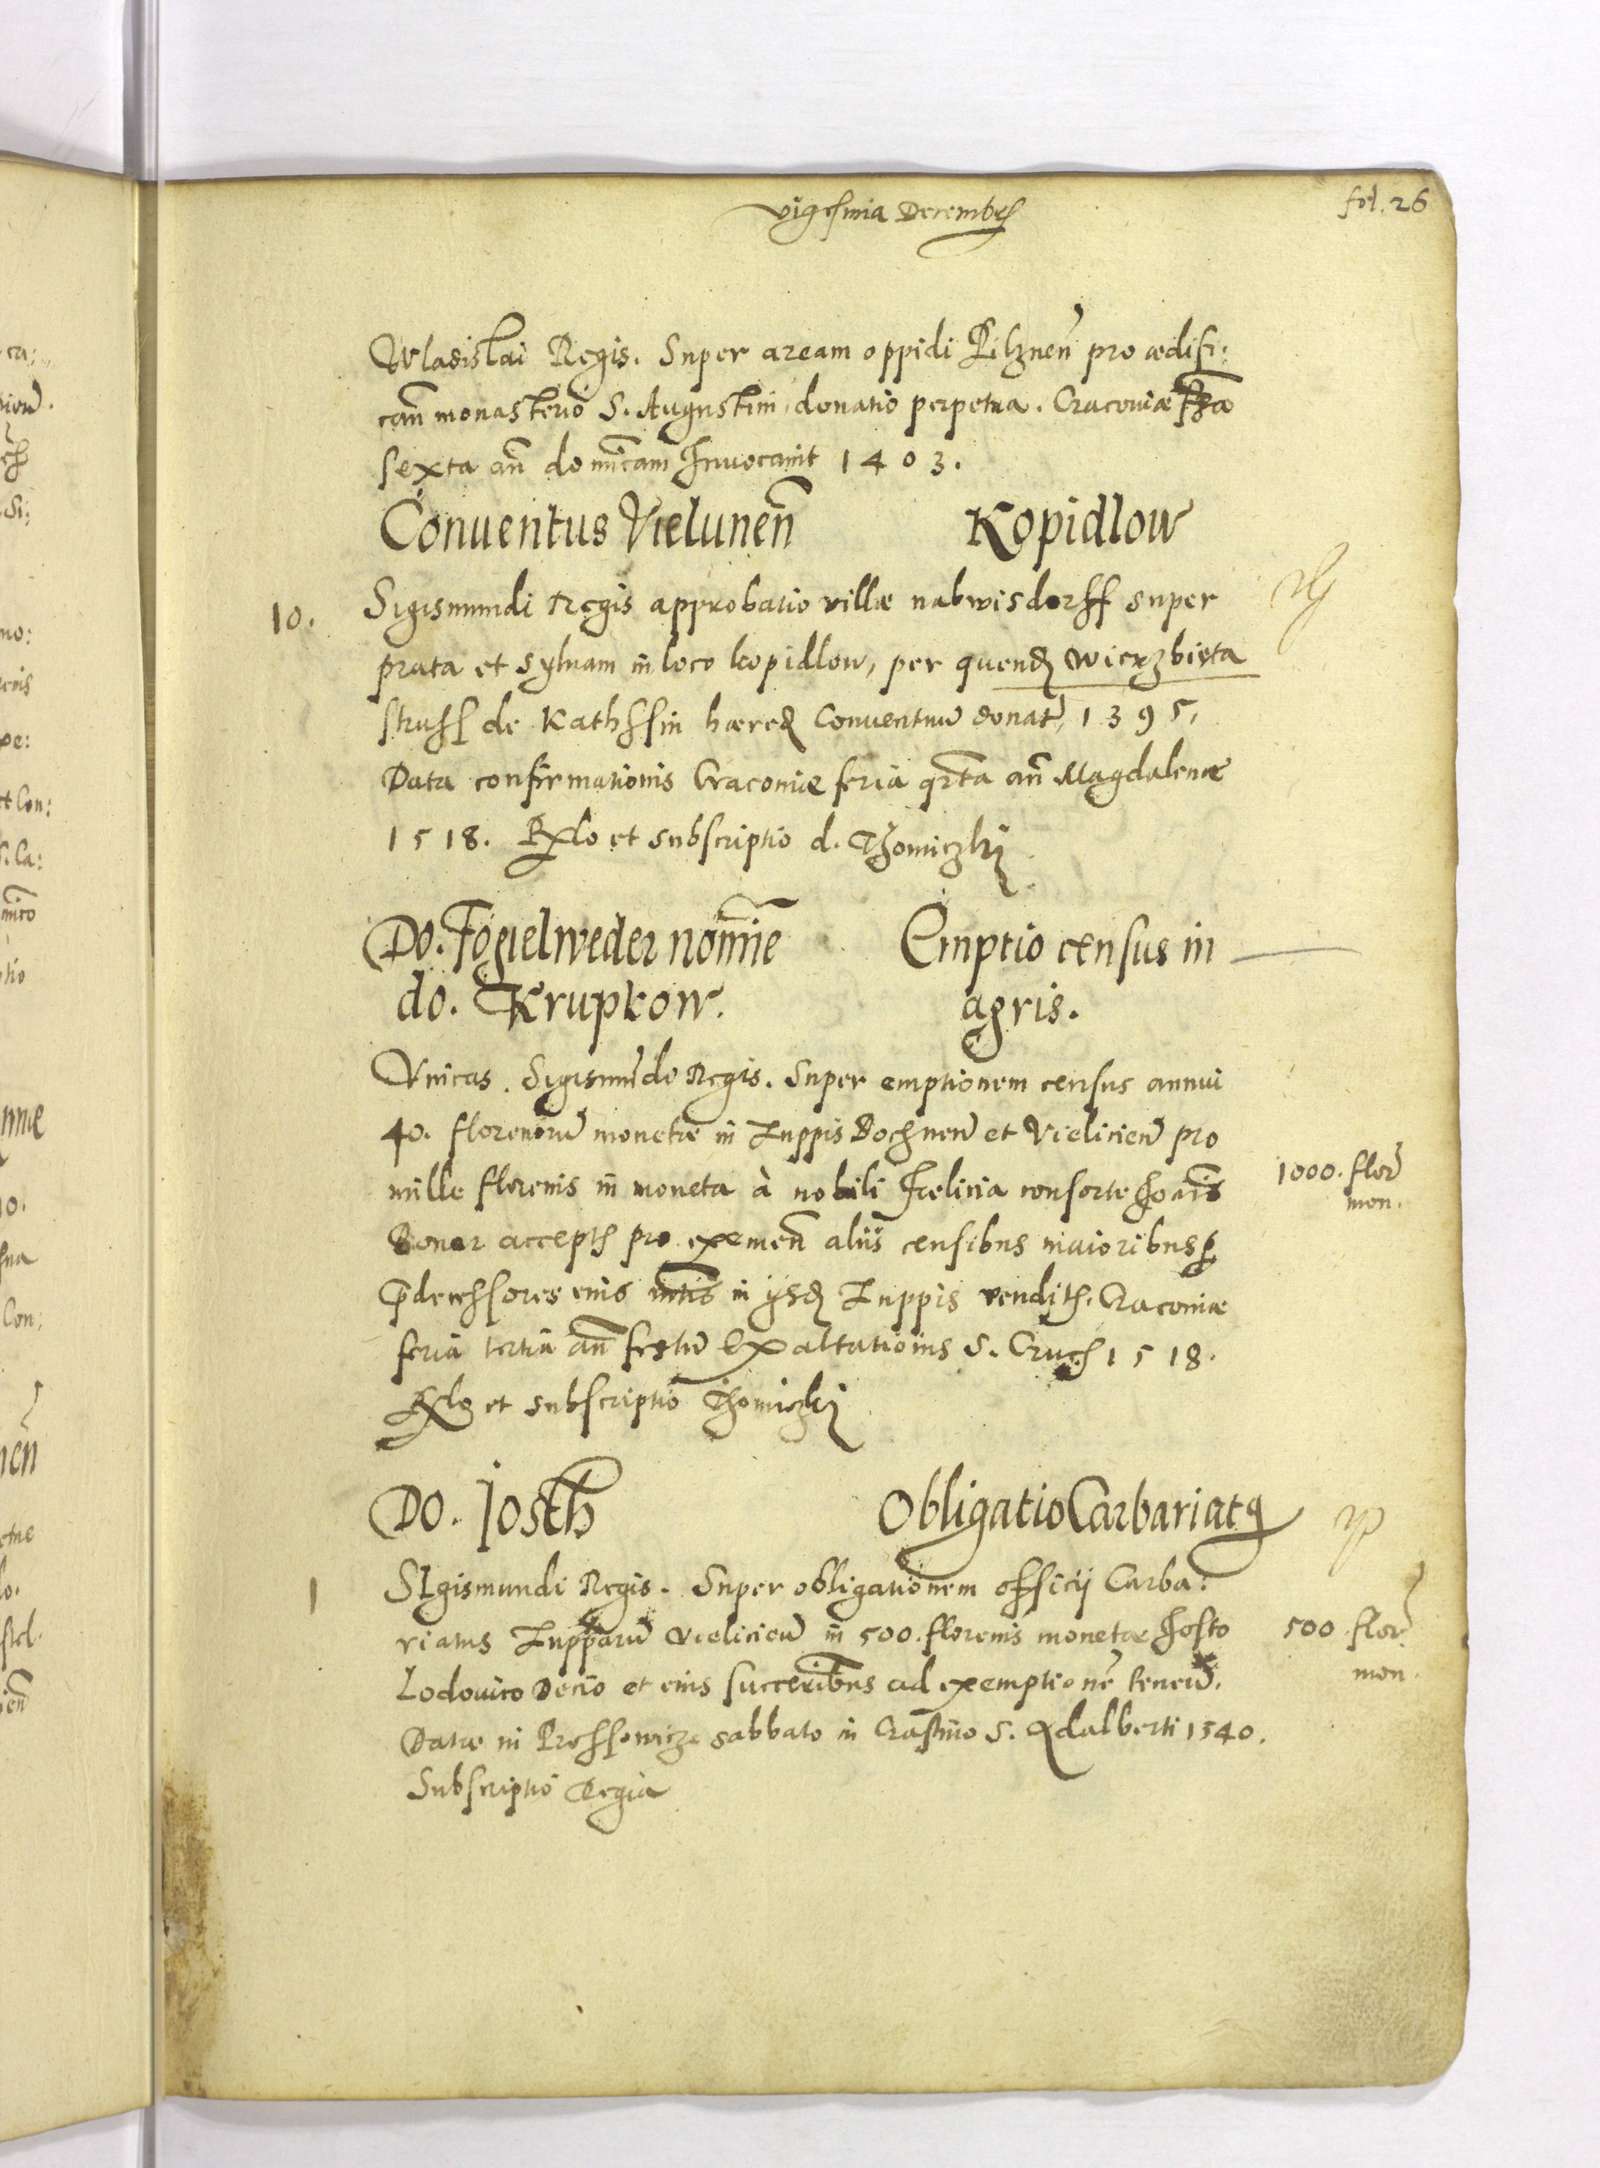 vigesima Decembris
fol. 26
Wladislai Regis. Super aream oppidi Pilznen̄ pro ædifi:
can̄ monasterio S. Augustini, donatio perpetua. Cracoviæ
sexta an̄ do micam Invocavit 1403.
Conventus Vielunen̄ Kopidlow
10. Sigismundi Regis approbatio villæ nakwisdorff super
prata et sylvam in loco kopidlow, per quend wierzbięta
strussz de Kathssin hæred Conventui donat, 1395,
Data confirmationis Cracoviæ feria qrta an̄ Magdalenæ
1518. Rlo et subscriptio d. Thomiczki
Do. Fogielweder nomīe Emptio census in
do. Krupkow. agris.
Vnicas. Sigismūdo Regis. Super emptionem census annui
40. florenorū monetæ in Zuppis Bochnen̄ et Vielicien̄ pro
mille florenis in moneta à nobili Felicia consorte Joānis 1000. flor mon.
Boner accept pro exemen̄ aliis censibus maioribus
p̄decessores eius in Zuppis vendit. Cracoviæ
feria tertia an̄ festū Exaltationis S. Crucis 1518.
Rlo et subscriptio Thomiczki
Do. Josth Obligatio Carbariatq
1 SIgismundi Regis. Super obligationem officij Carba:
riatus Zupparū Vielicien̄ in 500. florenis monetæ Josto 500 flor mon.
Lodovico Decio et eius succeribus ad exemptionē teneri.
Datæ in Prossowicze sabbato in Crastino S. Adalberti 1540.
Subscriptio Regia